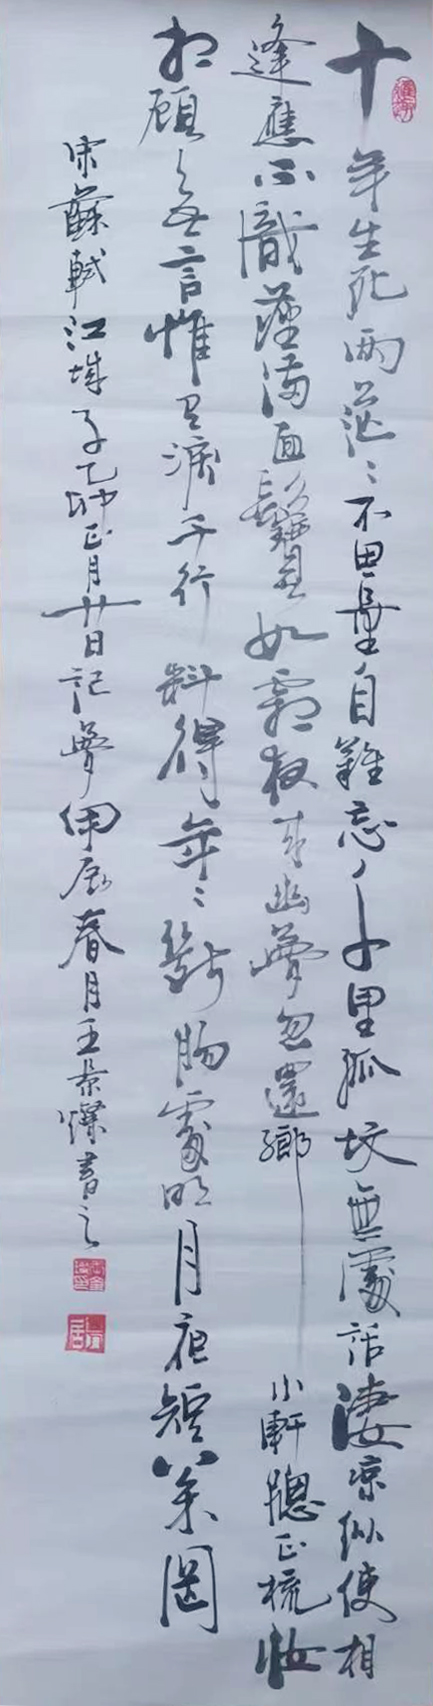 十年生死两茫々不思量自難忘千里孤坟無處話淒凉纵使相
逢應不識塵滿面鬢如霜夜来幽夢忽還鄉小軒窗正梳妆
相顧無言惟有淚千行料得年々斷肠處明月夜短松岡
宋蘇軾江城子乙卯正月廿日記夢甲辰春月王景燦書之